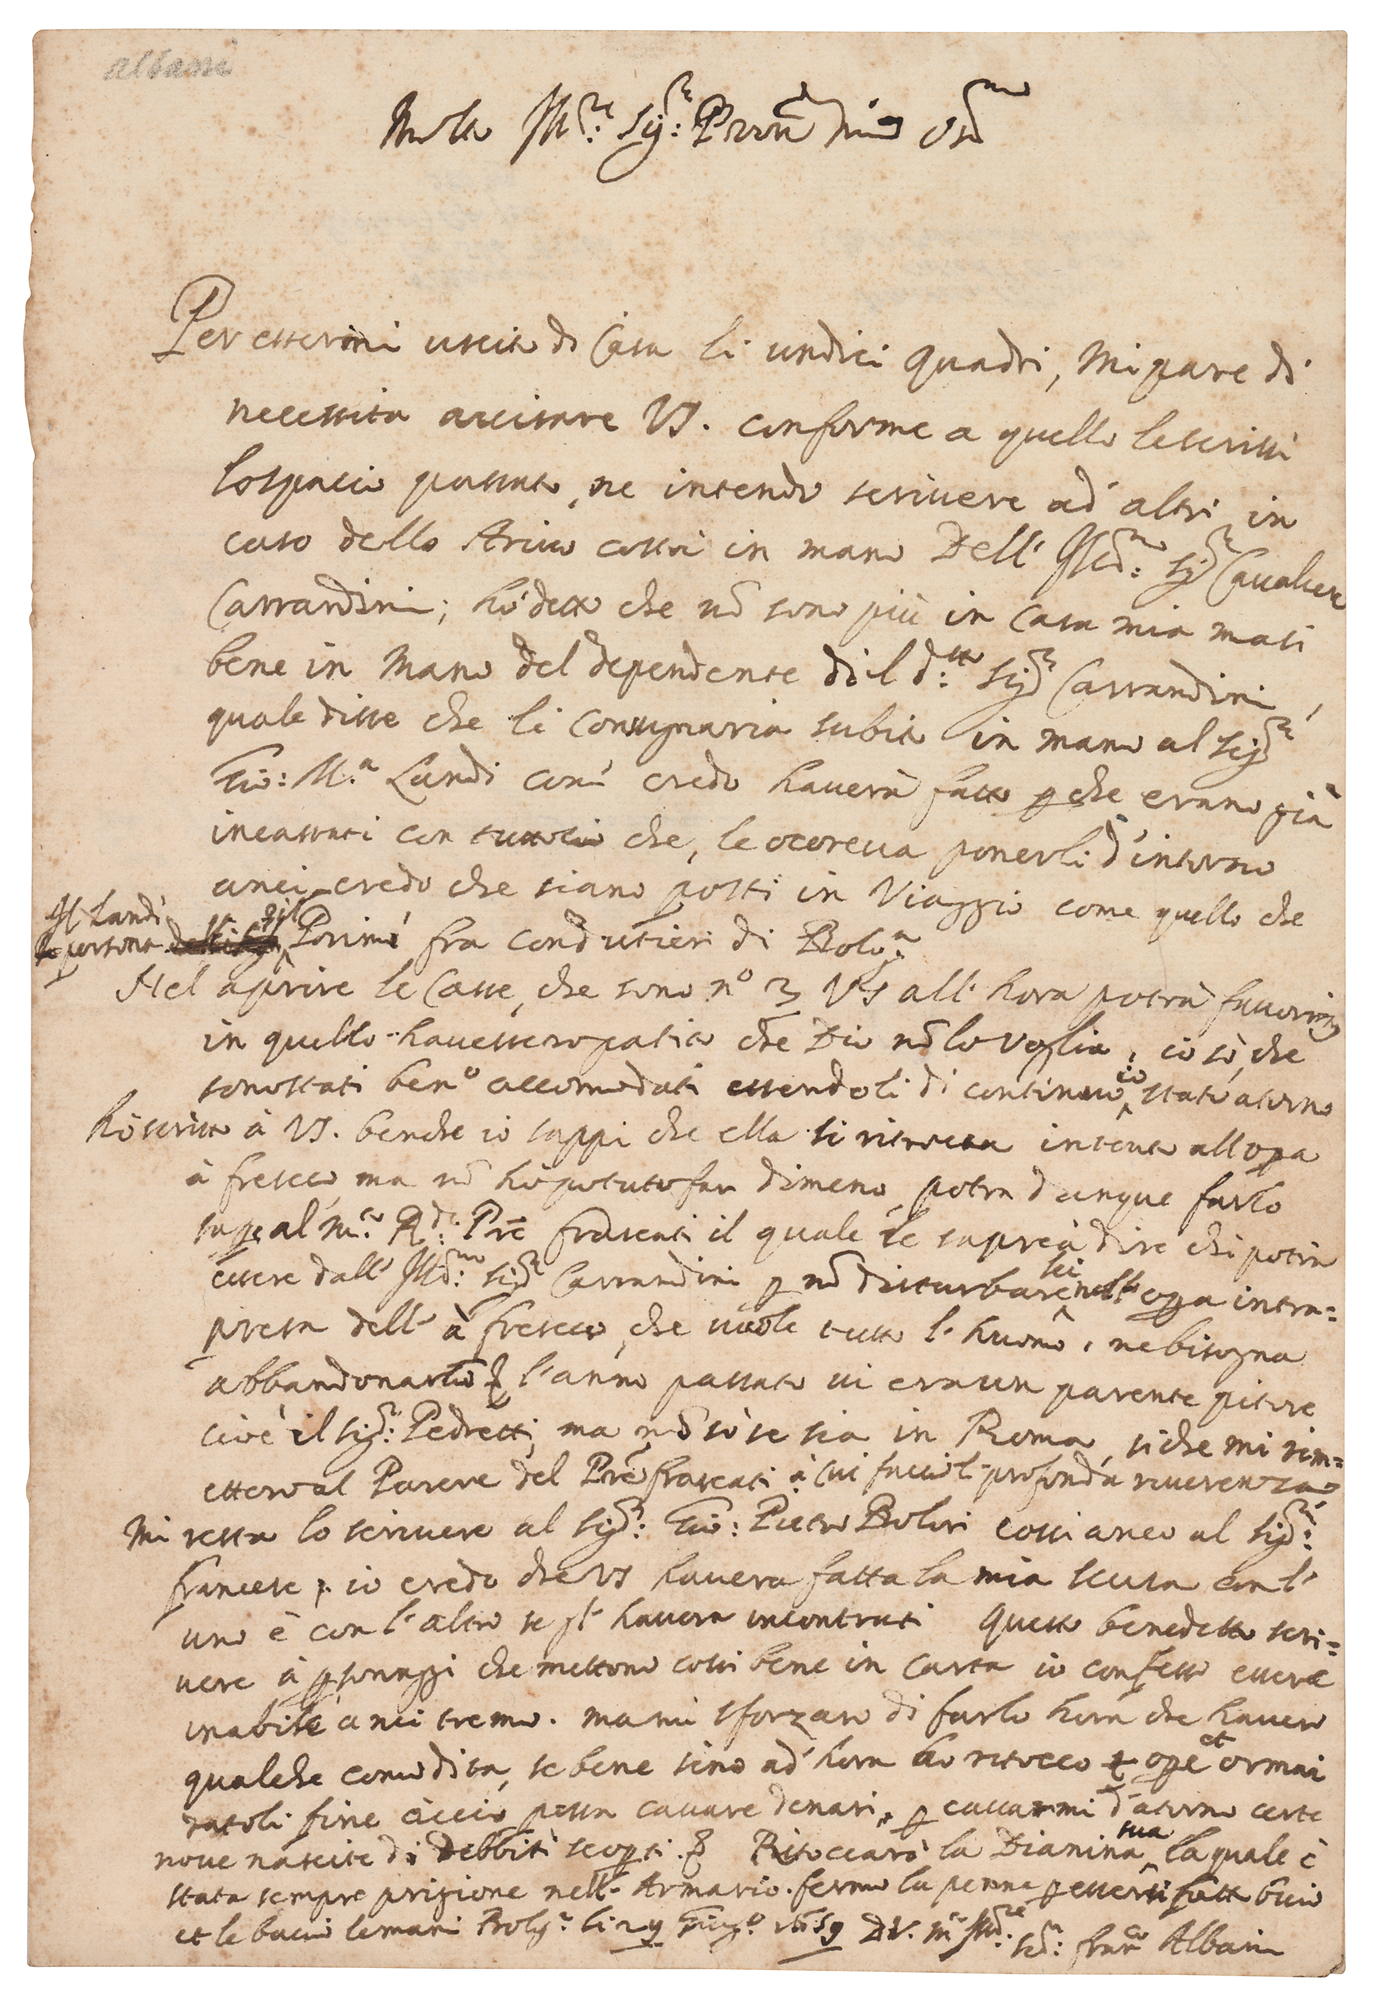 albani
Molto Ill.re Sig.r Pron mio oss.mo
Per essermi uscito di Casa li undici quadri, Mi pare di
necessita avisare VS. conforme a quello le scrissi
lo spacio passato, ne intendo scrivere ad' altri in
caso dello Arivo costì in mano Dell' Ill.mo Sig.r Cavaliere
Carrandini; hò detto che nõ sono più in Casa mia ma si
bene in Mano del dependente di il d.tto Sig.r Carrandini,
quale disse che li consignaria subito in mano al Sig.r
Gio: M.a Landi com' credo haverà fatto ꝑche erano già
incassati con tuttociò che, le ocoreva ponerli d'intorno
anci credo che siano posti in Viaggio come quello che
Il Landi
persona Primo fra condutieri di Bolog.a
Nel aprire le Casse, che sono n.o 3 VS all' hora potrà
in quello havessero patito che Dio nõ lo voglia, io sò, che
sono stati ben.o accomodati essendoli di continuo io stato atorno
Hò scritto à VS. benche io sappi che ella si ritrova intento all opa
à fresco, ma nõ hò potuto far dimeno, potra dunque farlo
saꝑe al M.to R.do Prẽ frascati il quale le saprea dire chi potrà
essere dall' Ill.mo Sig.r Carrandini ꝑ nõ disturbare lei nell' oꝑa intra=
presa dell' à fresco, che vuole tutto l' huomo, ne bisogna
abbandonarlo l'anno passato vi era un parente pitore
cioè il Sig.r Pedretti, ma nõ sò se sia in Roma, siche mi rim=
ettero al Parere del Prẽ frascati à cui faccio profonda riverenza
Mi resta lo scrivere al Sig.r Gio: Pietro Bolori cossi anco al Sig.r
francese, io credo che VS havera fatta la mia scusa con l'
uno è con l'altro se gl' havera incontrati Questo benedetto scri=
vere à ꝑsonaggi che mettono cossi bene in Carta io confesso essere
inabile anci tremo. ma mi sforzaro di farlo hora che havero
qualche comodita, se bene sino ad' hora ho ritocco oꝑe et ormai
fine acciò possa cavare denari, ꝑ cavarmi d'atorno certe
nove nascite di Debbiti scoꝑti. Ritoccarò la Dianina sua la quale è
stata sempre prigione nell' Armario. fermo la penna ꝑ essersi fatto buio
et le bacio le mani Bolog.a li 29 Giug.o 1659 DV. M.to Ill.re Sig.r fran.co Albani